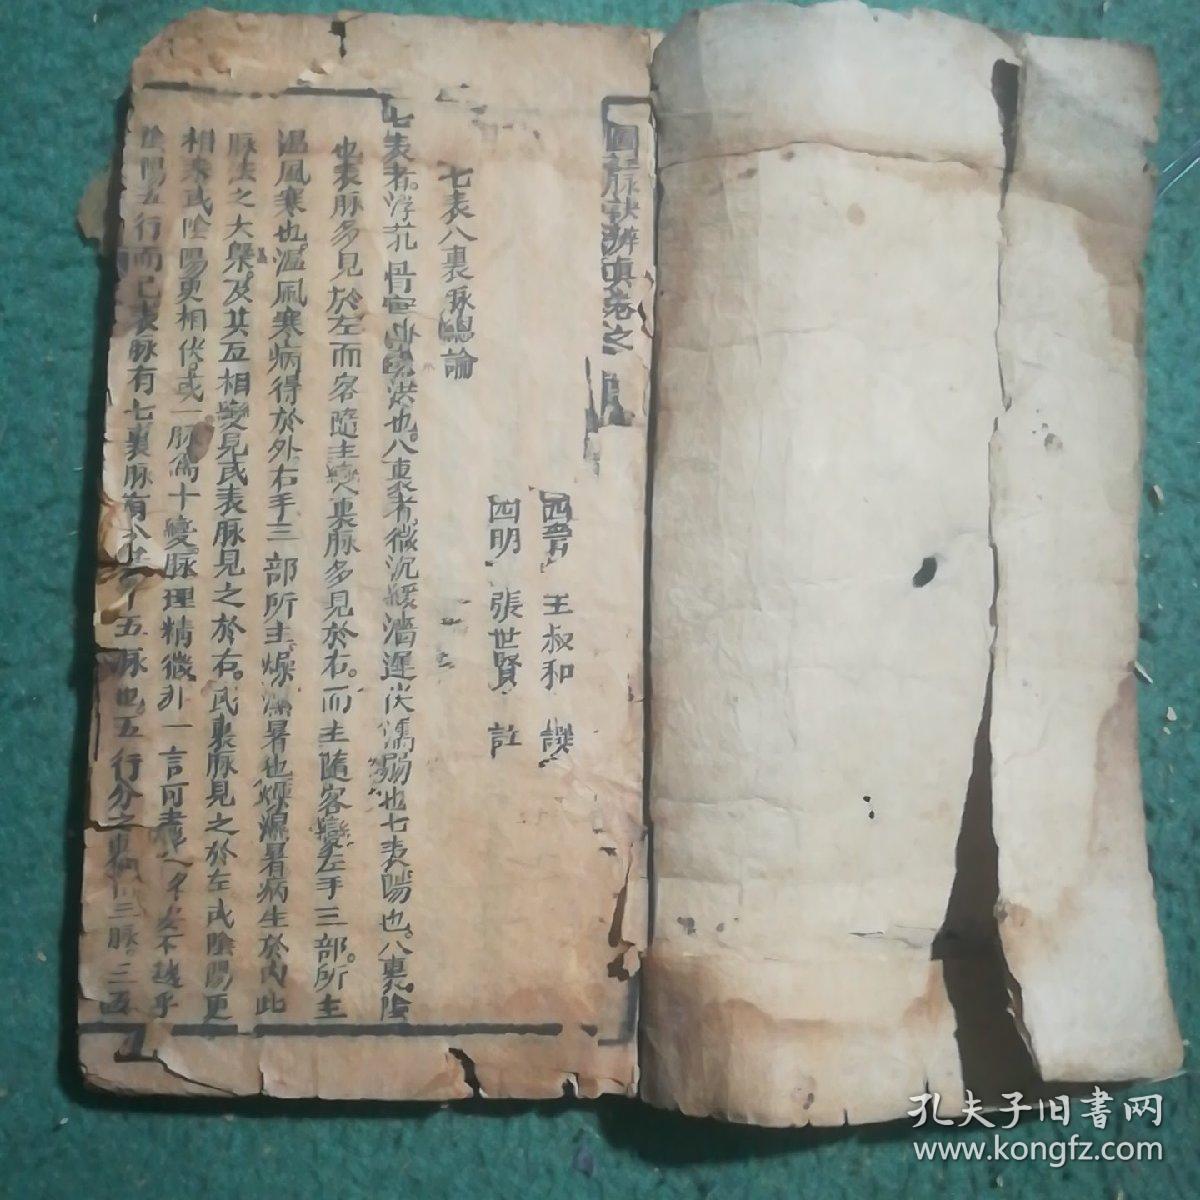 圖註脉訣辨真卷之
西晉 王叔和 譔
四明 張世賢 註
七表八裏脉總論
七表者浮芤滑實弦緊洪也八裏者微沉緩濇遲伏濡弱也七表陽也八裏陰
也表脉多見於左而客隨主變八裏脉多見於右而主隨客變左手三部所主
温風寒也温風寒病得於外右手三部所主燥濕暑也燥濕暑病生於内此
脉法之大槩及其互相變見或表脉見之於右或裏脉見之於左或陰陽更
相乘或陰陽更相伏或一脉爲十變脉理精微非一言可盡 要不越乎
陰陽五行而已表脉有七裏脉有八 十五脉也五行分之 三脉三五
孔夫子旧书网
www.kongfz.com